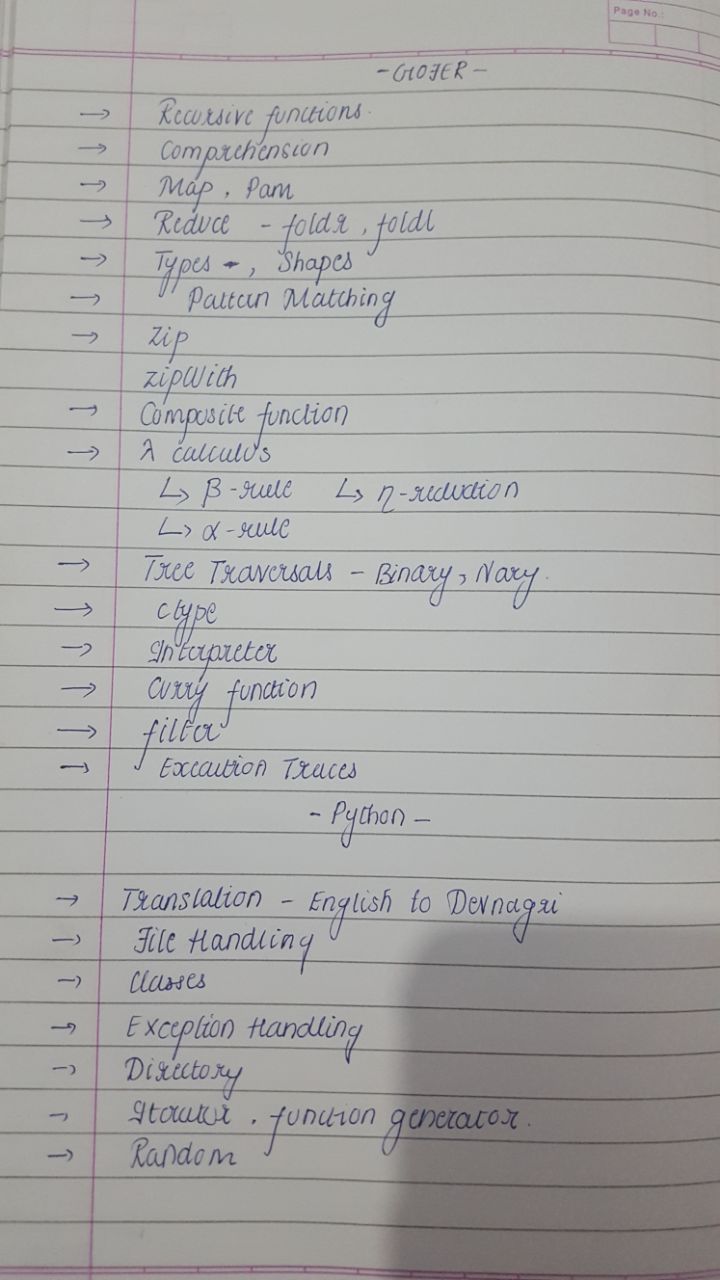 Page No.:
- GOFER -
→ Recursive functions.
→ Comprehension
→ Map, Pam
→ Reduce - foldr, foldl
→ Types -, Shapes
→ Pattern Matching
→ Zip
zipWith
→ Composite function
→ λ calculus
↳ β-rule ↳ η-reduction
↳ α-rule
→ Tree Traversals - Binary, Nary.
→ Ctype
→ Interpreter
→ Curry function
→ filter
→ Execution Traces
- Python -
→ Translation - English to Devnagri
→ File Handling
→ Classes
→ Exception Handling
→ Directory
→ Iterator, function generator.
→ Random